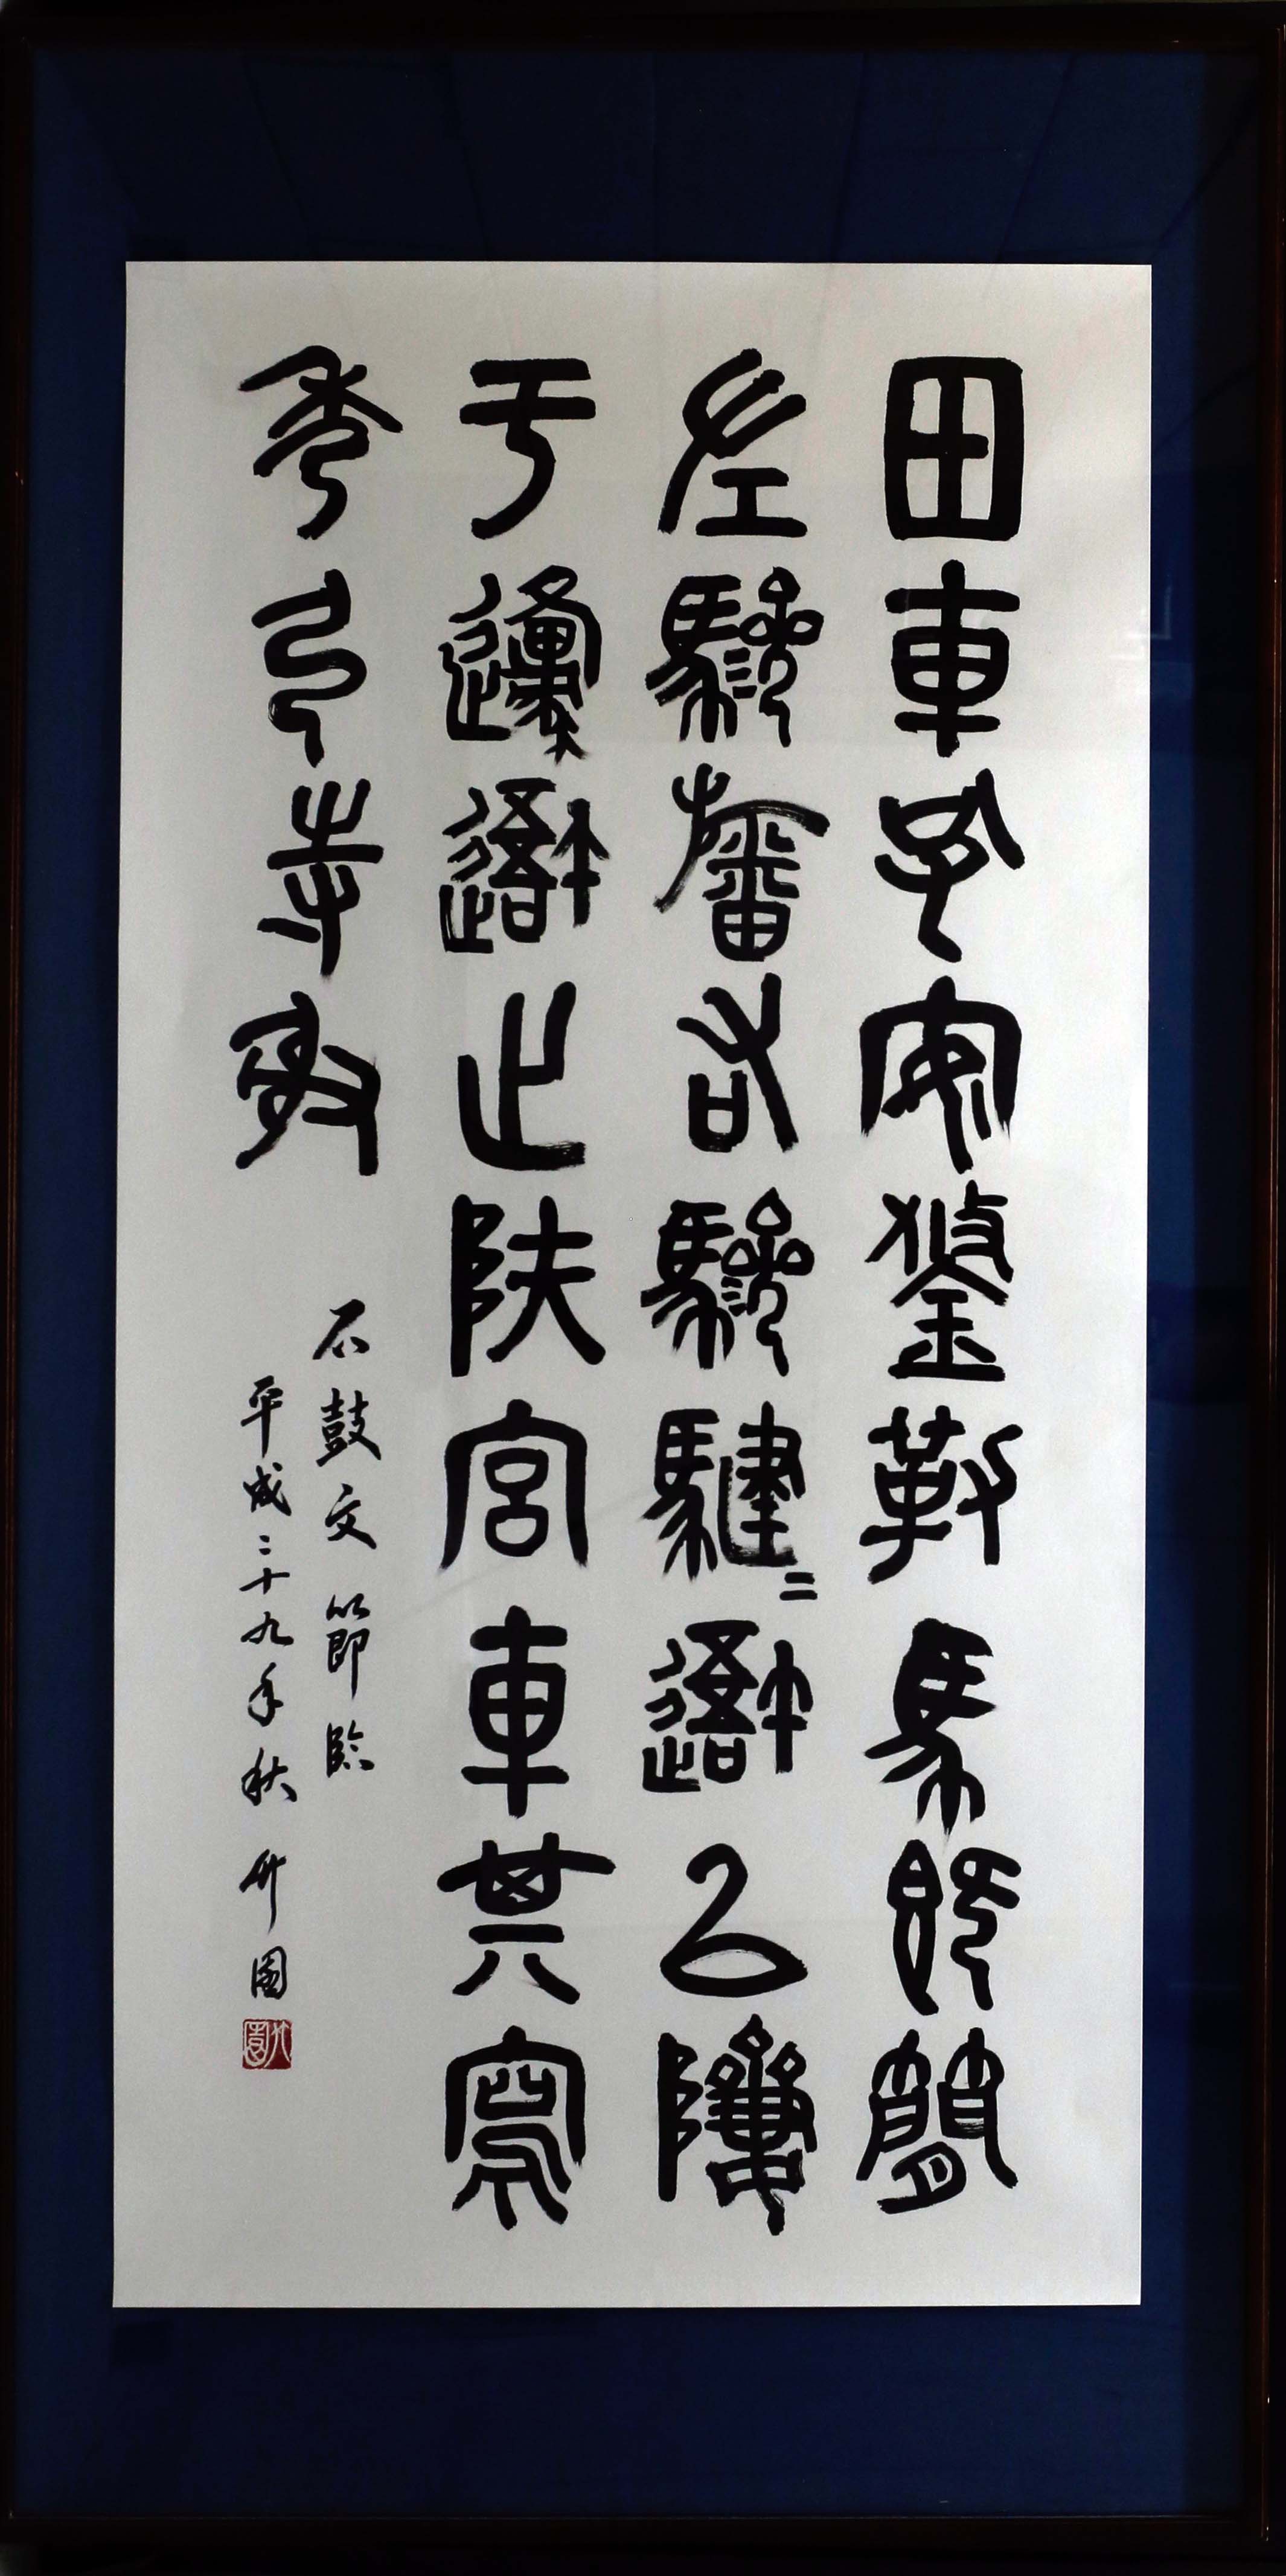 田車孔安鋚勒馬既簡
左驂旛右驂騝〻以隮
于邍止陜宮車其寫
秀弓寺射
石鼓文 節臨
平成二十九年秋 竹園
竹園